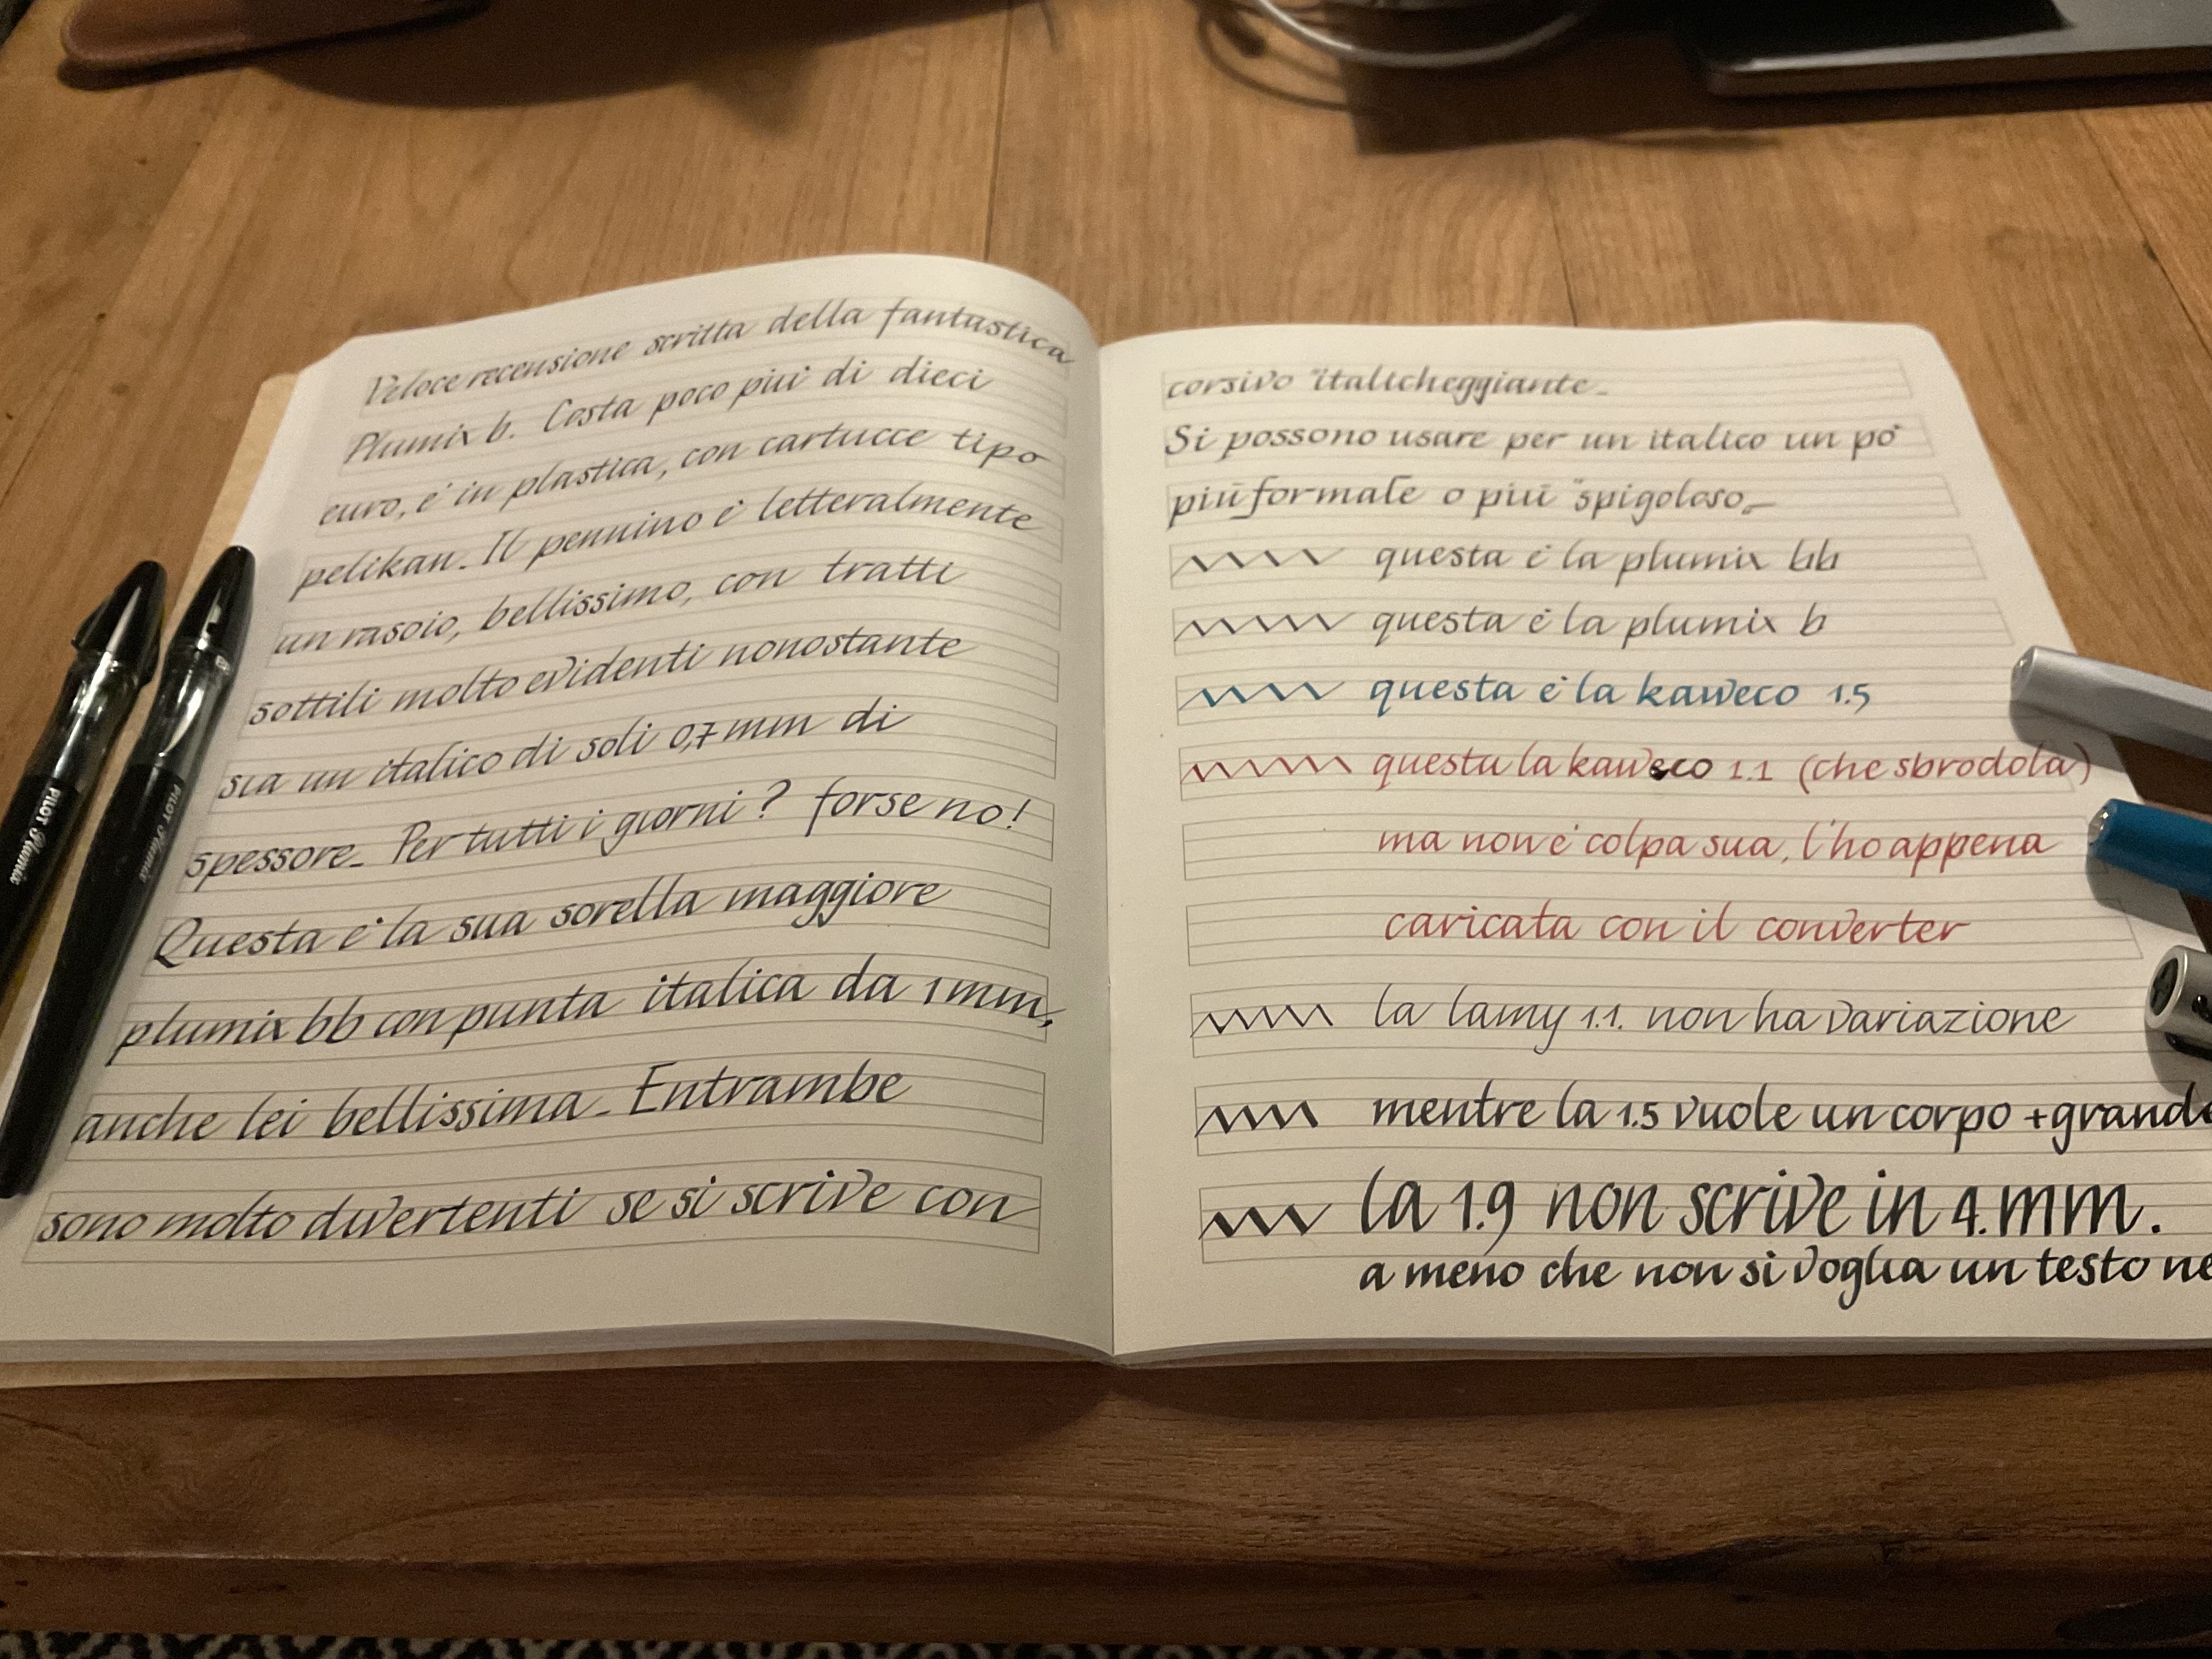 Veloce recensione scritta della fantastica
Plumix b. Costa poco più di dieci
euro, è in plastica, con cartucce tipo
pelikan. Il pennino è letteralmente
un rasoio, bellissimo, con tratti
sottili molto evidenti nonostante
sia un italico di soli 0,7 mm di
spessore. Per tutti i giorni? forse no!
Questa è la sua sorella maggiore
plumix bb con punta italica da 1 mm,
anche lei bellissima. Entrambe
sono molto divertenti se si scrive con
corsivo "italicheggiante.
Si possono usare per un italico un pò
più formale o più "spigoloso"
questa è la plumix bb
questa è la plumix b
questa è la kaweco 1.5
questa la kaweco 1.1 (che sbrodola)
ma non è colpa sua, l'ho appena
caricata con il converter
la lamy 1.1. non ha variazione
mentre la 1.5 vuole un corpo + grande
la 1.9 non scrive in 4.mm.
a meno che non si voglia un testo ne
PILOT Plumix
PILOT Plumix